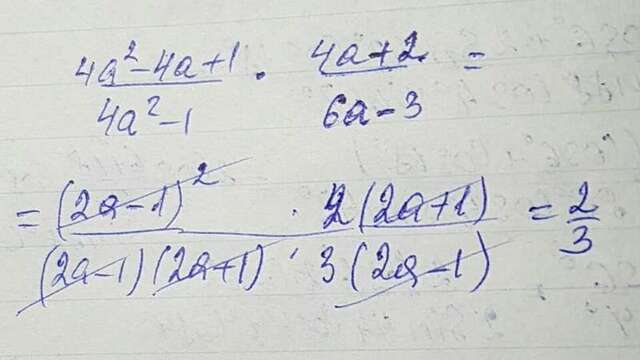 4a²-4a+1 / 4a²-1 · 4a+2 / 6a-3 =
= (2a-1)² · 2(2a+1) / (2a-1)(2a+1) · 3(2a-1) = 2/3